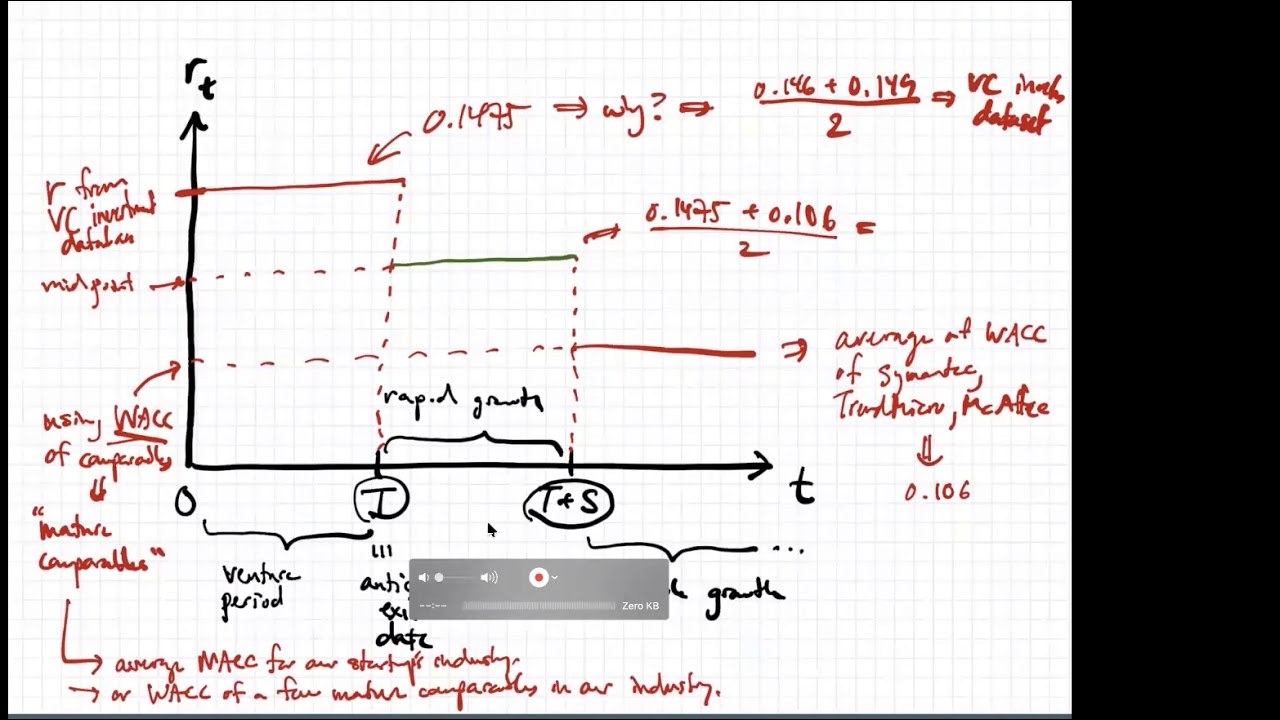 r_t
0.1475 ⇒ why? ⇒ (0.146 + 0.149)/2 ⇒ VC
dataset
r from
VC investment
database
midpoint →
(0.1475 + 0.106)/2 =
⇒ average of WACC
of Symantec,
TrendMicro, McAfee
⇓
0.106
using WACC
of comparables
⇓
"mature
comparables"
rapid growth
0
T
T+S
t
venture
period
III
date
growth
...
Zero KB
--:--
→ average WACC for our startup's industry.
→ or WACC of a few mature comparables in our industry.